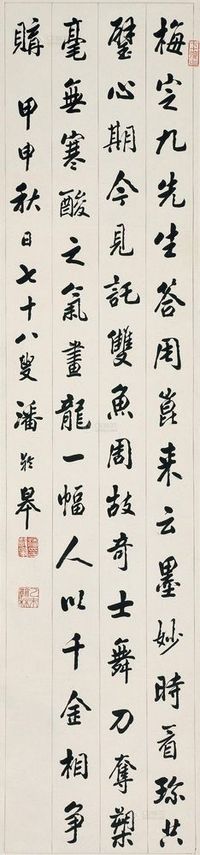 梅定九先生答周崑来云墨妙時看珎共
璧心期今見託雙魚周故奇士舞刀奪槊
毫無寒酸之氣畫龍一幅人以千金相爭
購 甲申秋日七十八叟潘齡皋